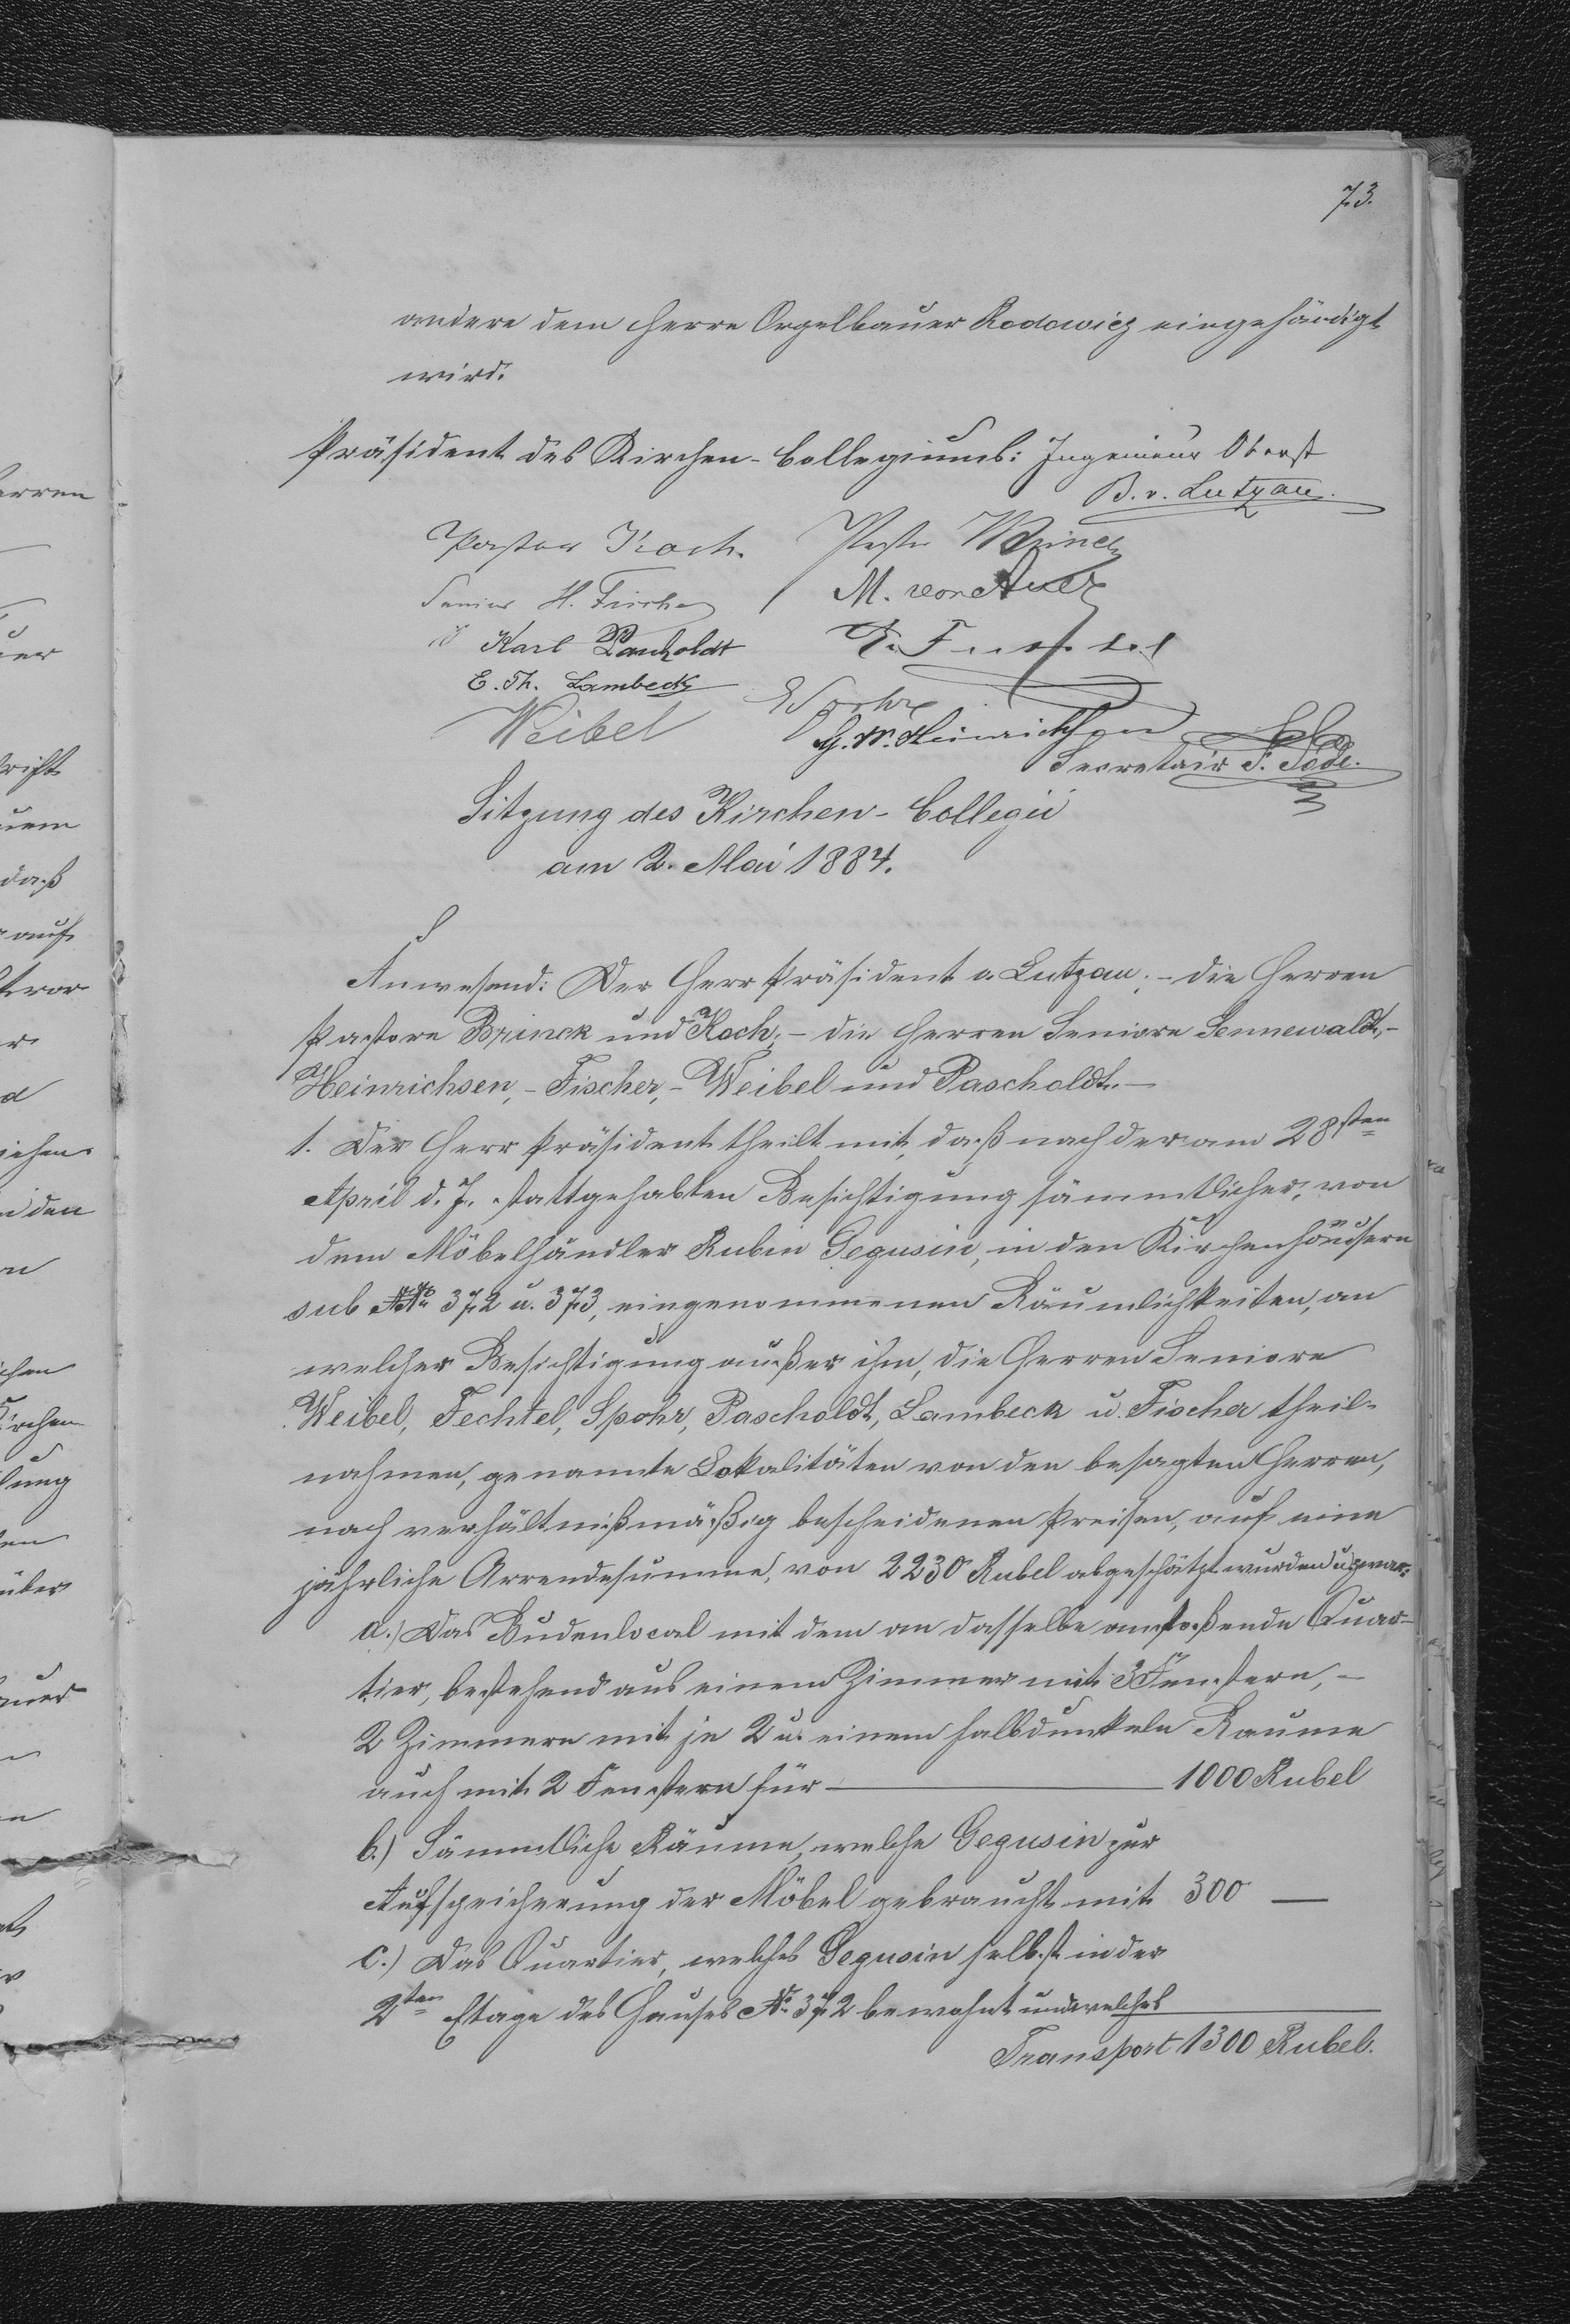 73.
andere dem Herrn Orgelbauer Rodowicz eingehändigt
wird.
Präsident des Kirchen-Collegiums: Ingenieur Oberst
B. v. Lutzau.
Pastor Koch. Pastor Brinck
Senior H. Fischer M. von
Karl Pascholdt Fechtel
E. Th. Lambeck Spohr
Weibel G. W. Heinrichsen
Secretair
Sitzung des Kirchen-Collegii
am 2. Mai 1884.
Anwesend: Der Herr Präsident v. Lutzau; – die Herren
Pastore Brinck und Koch; – die Herren Seniore Sennewaldt, –
Heinrichsen, – Fischer, – Weibel und Pascholdt. –
1. Der Herr Präsident theilt mit, daß nach der am 28sten
April d. J. stattgehabten Besichtigung sämmtlicher, von
dem Möbelhändler Rubin Gegusin, in den Kirchenhäusern
sub NNo 372 u. 373, eingenommenen Räumlichkeiten, an
welcher Besichtigung außer ihm, die Herren Seniore
Weibel, Fechtel, Spohr, Pascholdt, Lambeck u. Fischer theil-
nahmen, genannte Lokalitäten von den besagten Herren,
nach verhältnißmäßig bescheidenen Preisen, auf eine
jährliche Arrendesumme, von 2230 Rubel abgeschätzt wurden u. zwar:
a.) Das Budenlocal mit dem an dasselbe anstoßende Quar-
tier, bestehend aus einem Zimmer mit 3 Fenstern, –
2 Zimmern mit je 2 u. einem halbdunkeln Raume
auch mit 2 Fenstern für — 1000 Rubel
b.) Sämmtliche Räume, welche Gegusin zur
Aufspeicherung der Möbel gebraucht mit 300 —
c.) Das Quartier, welches Gegusin selbst in der
2ten Etage des Hauses No 372 bewohnt und welches
Transport 1300 Rubel.